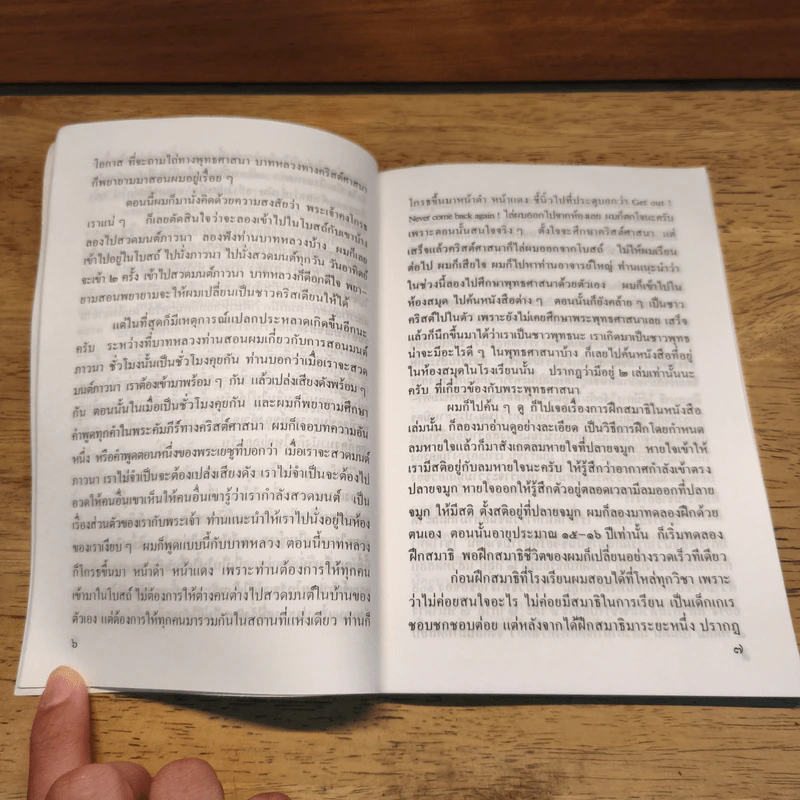 โอกาส ที่จะถามไถ่ทางพุทธศาสนา บาทหลวงทางคริสต์ศาสนา
ก็พยายามมาสอนผมอยู่เรื่อย ๆ
ตอนนี้ผมก็มานั่งคิดด้วยความสงสัยว่า พระเจ้าคงโกรธ
เราแน่ ๆ ก็เลยตัดสินใจว่าจะลองเข้าไปในโบสถ์กับเขาบ้าง
ลองไปสวดมนต์ภาวนา ลองฟังท่านบาทหลวงบ้าง ผมก็เลย
เข้าไปอยู่ในโบสถ์ ไปนั่งภาวนา ไปนั่งสวดมนต์ทุกวัน วันอาทิตย์
จะเข้า ๒ ครั้ง เข้าไปสวดมนต์ภาวนา บาทหลวงก็ดีอกดีใจ พยา-
ยามสอนพยายามจะให้ผมเปลี่ยนเป็นชาวคริสเตียนให้ได้
แต่ในที่สุดก็มีเหตุการณ์แปลกประหลาดเกิดขึ้นอีกนะ
ครับ ระหว่างที่บาทหลวงท่านสอนผมเกี่ยวกับการสอนมนต์
ภาวนา ชั่วโมงนั้นเป็นชั่วโมงคุยกัน ท่านบอกว่าเมื่อเราจะสวด
มนต์ภาวนา เราต้องเข้ามาพร้อม ๆ กัน แล้วเปล่งเสียงดังพร้อม ๆ
กัน ตอนนั้นในเมื่อเป็นชั่วโมงคุยกัน และผมก็พยายามศึกษา
คำพูดทุกคำในพระคัมภีร์ทางคริสต์ศาสนา ผมก็เจอบทความอัน
หนึ่ง หรือคำพูดตอนหนึ่งของพระเยซูที่บอกว่า เมื่อเราจะสวดมนต์
ภาวนา เราไม่จำเป็นจะต้องเปล่งเสียงดัง เราไม่จำเป็นจะต้องไป
อวดให้คนอื่นเขาเห็นให้คนอื่นเขารู้ว่าเรากำลังสวดมนต์ เป็น
เรื่องส่วนตัวของเรากับพระเจ้า ท่านแนะนำให้เราไปนั่งอยู่ในห้อง
ของเราเงียบ ๆ ผมก็พูดแบบนี้กับบาทหลวง ตอนนี้บาทหลวง
ก็โกรธขึ้นมา หน้าดำ หน้าแดง เพราะท่านต้องการให้ทุกคน
เข้ามาในโบสถ์ ไม่ต้องการให้ต่างคนต่างไปสวดมนต์ในบ้านของ
ตัวเอง แต่ต้องการให้ทุกคนมารวมกันในสถานที่แห่งเดียว ท่านก็
๖
โกรธขึ้นมาหน้าดำ หน้าแดง ชี้นิ้วไปที่ประตูบอกว่า Get out !
Never come back again ! ไล่ผมออกไปจากห้องเลย ผมก็ตกใจนะครับ
เพราะตอนนั้นสนใจจริง ๆ ตั้งใจจะศึกษาคริสต์ศาสนา แต่
เสร็จแล้วคริสต์ศาสนาก็ไล่ผมออกจากโบสถ์ ไม่ให้ผมเรียน
ต่อไป ผมก็เสียใจ ผมก็ไปหาท่านอาจารย์ใหญ่ ท่านแนะนำว่า
ในช่วงนี้ลองไปศึกษาพุทธศาสนาด้วยตัวเอง ผมก็เข้าไปใน
ห้องสมุด ไปค้นหนังสือต่าง ๆ ตอนนั้นก็ยังคล้าย ๆ เป็นชาว
คริสต์ไปในตัว เพราะยังไม่เคยศึกษาพระพุทธศาสนาเลย เสร็จ
แล้วก็นึกขึ้นมาได้ว่าเราเป็นชาวพุทธนะ เราเกิดมาเป็นชาวพุทธ
น่าจะมีอะไรดี ๆ ในพุทธศาสนาบ้าง ก็เลยไปค้นหนังสือที่อยู่
ในห้องสมุดในโรงเรียนนั้น ปรากฏว่ามีอยู่ ๒ เล่มเท่านั้นนะ
ครับ ที่เกี่ยวข้องกับพระพุทธศาสนา
ผมก็ไปค้น ๆ ดู ก็ไปเจอเรื่องการฝึกสมาธิในหนังสือ
เล่มนั้น ก็ลองมาอ่านดูอย่างละเอียด เป็นวิธีการฝึกโดยกำหนด
ลมหายใจแล้วก็มาสังเกตลมหายใจที่ปลายจมูก หายใจเข้าให้
เรามีสติอยู่กับลมหายใจนะครับ ให้รู้สึกว่าอากาศกำลังเข้าตรง
ปลายจมูก หายใจออกให้รู้สึกตัวอยู่ตลอดเวลามีลมออกที่ปลาย
จมูก ให้มีสติ ตั้งสติอยู่ที่ปลายจมูก ผมก็ลองมาทดลองฝึกด้วย
ตนเอง ตอนนั้นอายุประมาณ ๑๕-๑๖ ปีเท่านั้น ก็เริ่มทดลอง
ฝึกสมาธิ พอฝึกสมาธิชีวิตของผมก็เปลี่ยนอย่างรวดเร็วทีเดียว
ก่อนฝึกสมาธิที่โรงเรียนผมสอบได้ที่โหล่ทุกวิชา เพราะ
ว่าไม่ค่อยสนใจอะไร ไม่ค่อยมีสมาธิในการเรียน เป็นเด็กเกเร
ชอบชกชอบต่อย แต่หลังจากได้ฝึกสมาธิมาระยะหนึ่ง ปรากฏ
๗